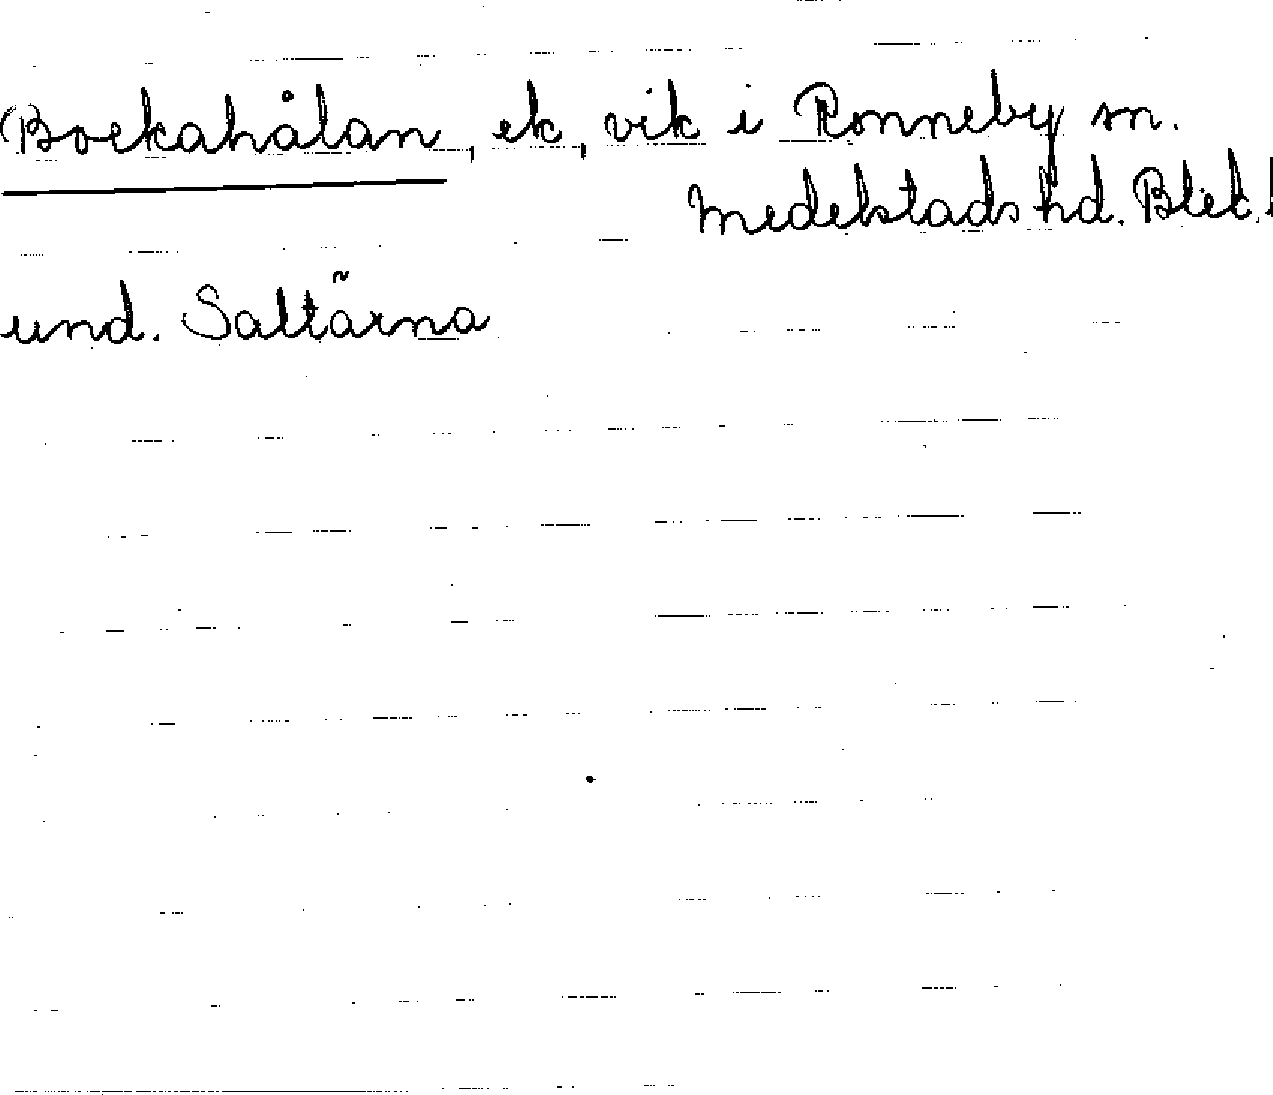 Bockahålan, ek, vik i Ronneby sn.
Medelstads hd. Blek.
und. Saltärna